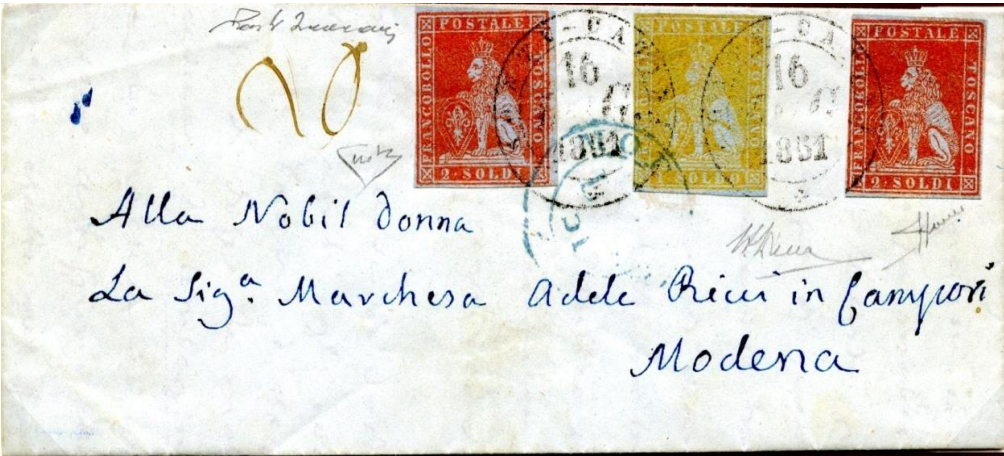 20
POSTALE FRANCOBOLLO TOSCANO 2 · SOLDI
16
1851
POSTALE TOSCANO 1 SOLDO
16
1851
POSTALE FRANCOBOLLO TOSCANO 2 · SOLDI
Alla Nobil donna
La Sigª. Marchesa Adele Ricci in Campori
Modena